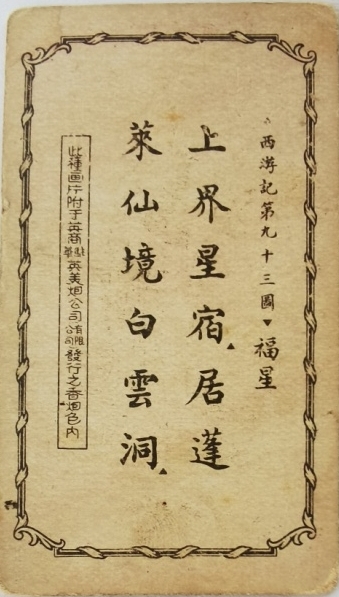 西游記第九十三圖 福星
上界星宿居蓬
萊仙境白雲洞
此種畫片附于英商駐華英美烟公司有限公司發行之香烟包內